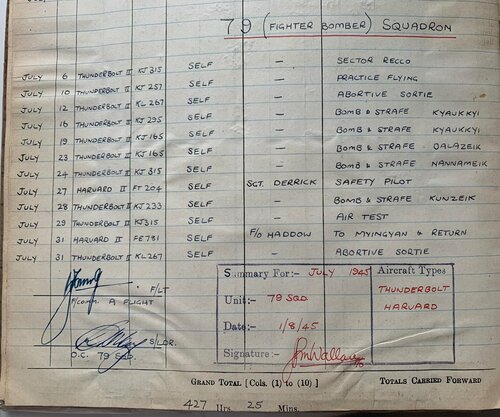 79 (FIGHTER BOMBER) SQUADRON
JULY 6 THUNDERBOLT II KJ 315 SELF — SECTOR RECCO
JULY 10 THUNDERBOLT II KJ 257 SELF — PRACTICE FLYING
JULY 12 THUNDERBOLT II KL 267 SELF — ABORTIVE SORTIE
JULY 16 THUNDERBOLT II KJ 295 SELF — BOMB & STRAFE KYAUKKYI
JULY 19 THUNDERBOLT II KJ 165 SELF — BOMB & STRAFE KYAUKKYI
JULY 23 THUNDERBOLT II KJ 165 SELF — BOMB & STRAFE QALAZEIK
JULY 24 THUNDERBOLT II KJ 315 SELF — BOMB & STRAFE NANNAMEIK
JULY 27 HARVARD II FT 204 SELF SGT. DERRICK SAFETY PILOT
JULY 28 THUNDERBOLT II KJ 233 SELF — BOMB & STRAFE KUNZEIK
JULY 29 THUNDERBOLT II KJ 315 SELF — AIR TEST
JULY 31 HARVARD II FE 781 SELF F/O HADDOW TO MYINGYAN & RETURN
JULY 31 THUNDERBOLT II KL 267 SELF — ABORTIVE SORTIE
F/LT
F/COMM. A FLIGHT
S/LDR.
O.C. 79 SQD.
Summary For:- JULY 1945 Aircraft Types
Unit:- 79 SQD THUNDERBOLT
Date:- 1/8/45 HARVARD
Signature:- JMWallace F/O
GRAND TOTAL [Cols. (1) to (10)] TOTALS CARRIED FORWARD
427 Hrs. 25 Mins.